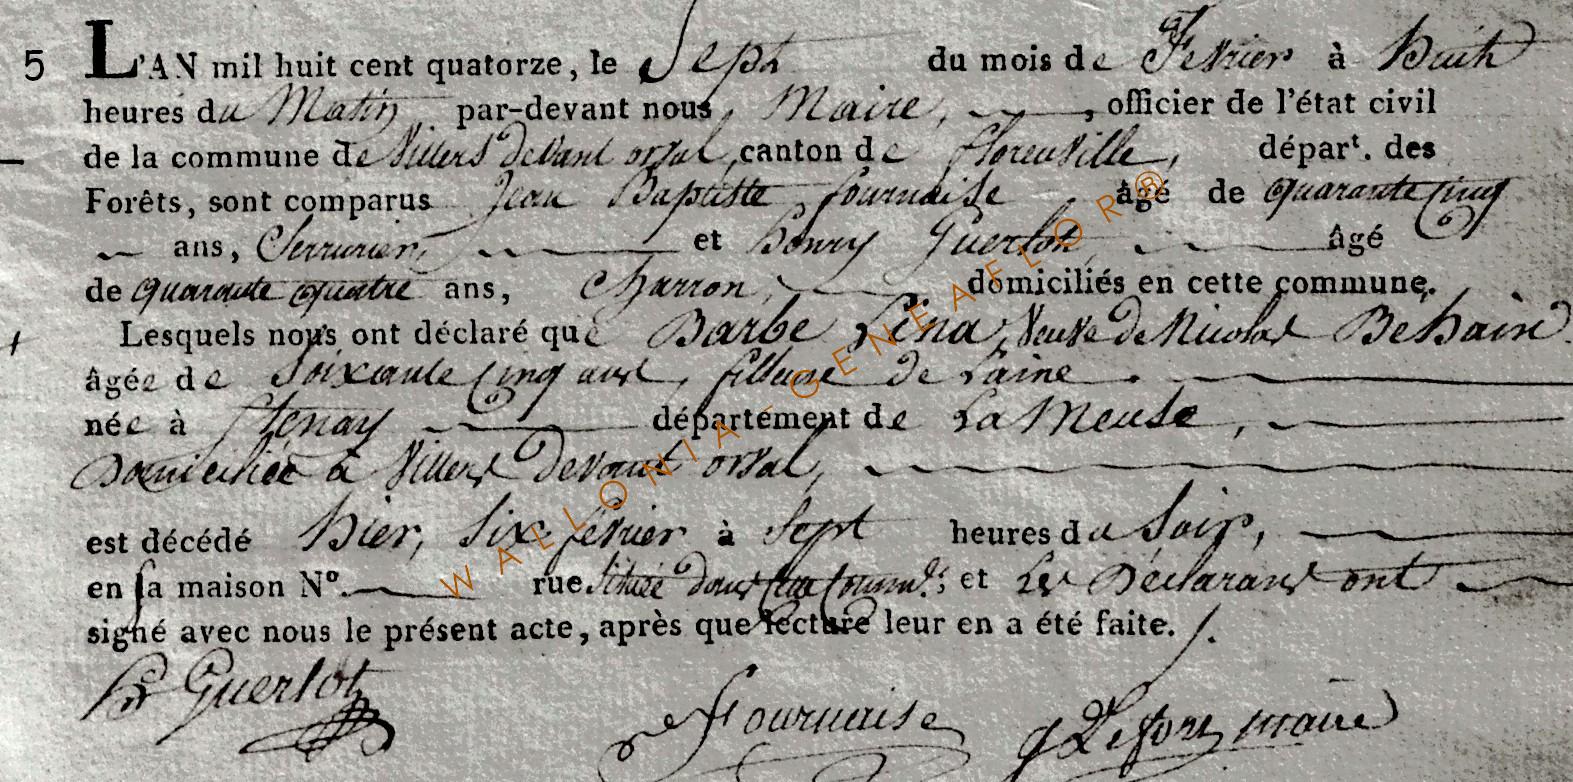 5 L'AN mil huit cent quatorze, le Sept du mois de Fevrier à huit
heures du Matin par-devant nous, Maire, officier de l'état civil
de la commune de Villers devant orval, canton de florenville, départ. des
Forêts, sont comparus Jean Baptiste fournaise âgé de quarante Cinq
ans, Serrurier, et henry Guerlot, âgé
de quarante quatre ans, Charron, domiciliés en cette commune.
Lesquels nous ont déclaré que Barbe Léna, Veuve de Nicolas Behain
âgée de Soixante Cinq ans, filleuse de Laine
née à Stenay département de La Meuse,
Domiciliée à Villers devant orval,
est décédé hier, Six fevrier à Sept heures du Soir,
en sa maison N°. rue Située dans Cette Commu.e; et Les Déclarans ont
signé avec nous le présent acte, après que lecture leur en a été faite.
hri Guerlot
Fournaise
Lefort maire
WALLONIA-GENEAFLOR®